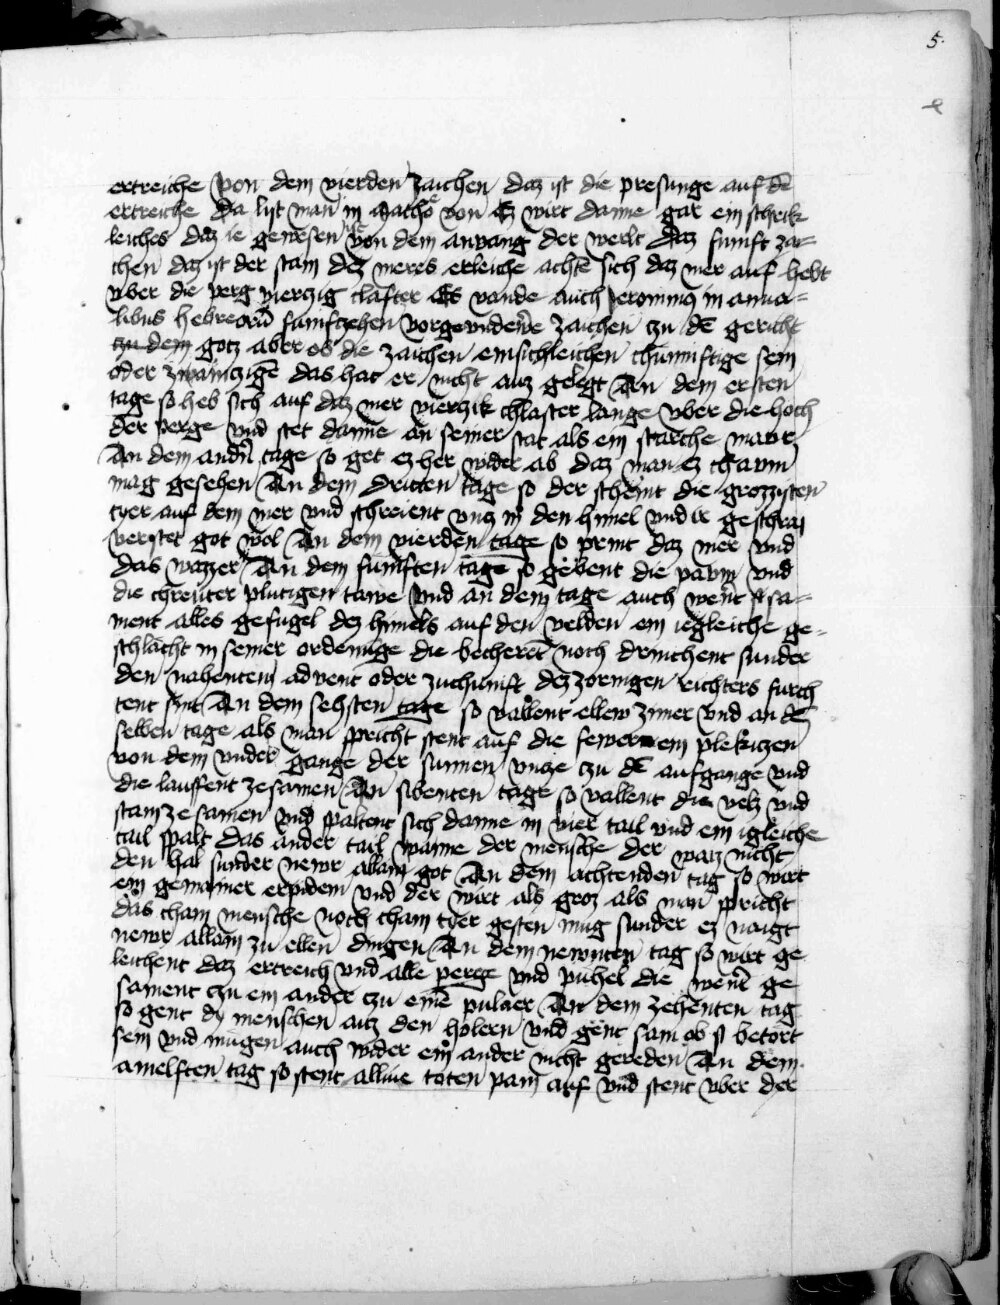 5.
ertreiche von dem vierden zaichen daz ist die presunge auf dē
ertreiche Da list man in Matheo von Ez wirt danne gar ein schrik
leiches daz ie gewesen ist von dem anvang der werlt Daz funft zai=
chen daz ist der stam dez meres erleiche achte sich daz mer auf hebt
vber die perg vierczig clafter Es vande auch Jeronimus in anna=
libus hebreorū funfczehen vorgevndene zaichen czu dē gericht
czu dem gotz aber ob die zaichen einsichleichen chunnftige sein
oder zwainczige das hat er nicht auz gelegt An dem ersten
tage so heb sich auf daz mer vierczik chlafter lange vber die hoch
der perge vnd stet danne an seiner stat als ein starche maur
An dem andn̄ tage so get ez her wider ab daz man ez chaum
mag gesehen An dem dritten tage so der scheint die grozzisten
tyer auf dem mer vnd schreient vncz in den himel vnd ir geschrai
verstet got wol An dem vierden tage so print daz mer vnd
das wazzer An dem funften tage so gebent die paum vnd
die chreuter plutigen tawe vnd an dem tage auch wert sa=
ment alles gefugel dez himels auf den velden ein iegleiche ge=
schlacht in seiner ordenunge die becheret noch drinchent sunder
den nahenten advent oder zuchunft dez zornigen richters furch
tent sint An dem sehsten tage so vallent ellew zimer vnd an dē
selben tage als man spricht stent auf die fewer ein plekiczen
von dem vnder gange der sunnen vncze czu dē aufgange vnd
die lauffent zesamen An sibenten tage so vallent die velz vnd
stain ze samen vnd spaltent sich danne in vier tail vnd ein igleiche
tail spalt das ander tail wanne der mensche der waiz nicht
den hal sunder newr allain got An dem achtenden tag so wirt
ein gemainer erpidem vnd der wirt als groz als man spricht
das cham mensche noch cham tyer gesten mug sunder ez naigt
newr allain zu ellen dingen An dem newnten tag so wirt ge
leichent daz ertreich vnd alle perge vnd puhel die wert ge
sament czu ein ander czu eime pulver An dem zehenten tag
so gent dy menschen auz den holern vnd gent sam ob si betort
sein vnd mugen auch wider ein ander nicht gereden An dem
ainelften tag so stent alliue toten pain auf vnd stent vber der